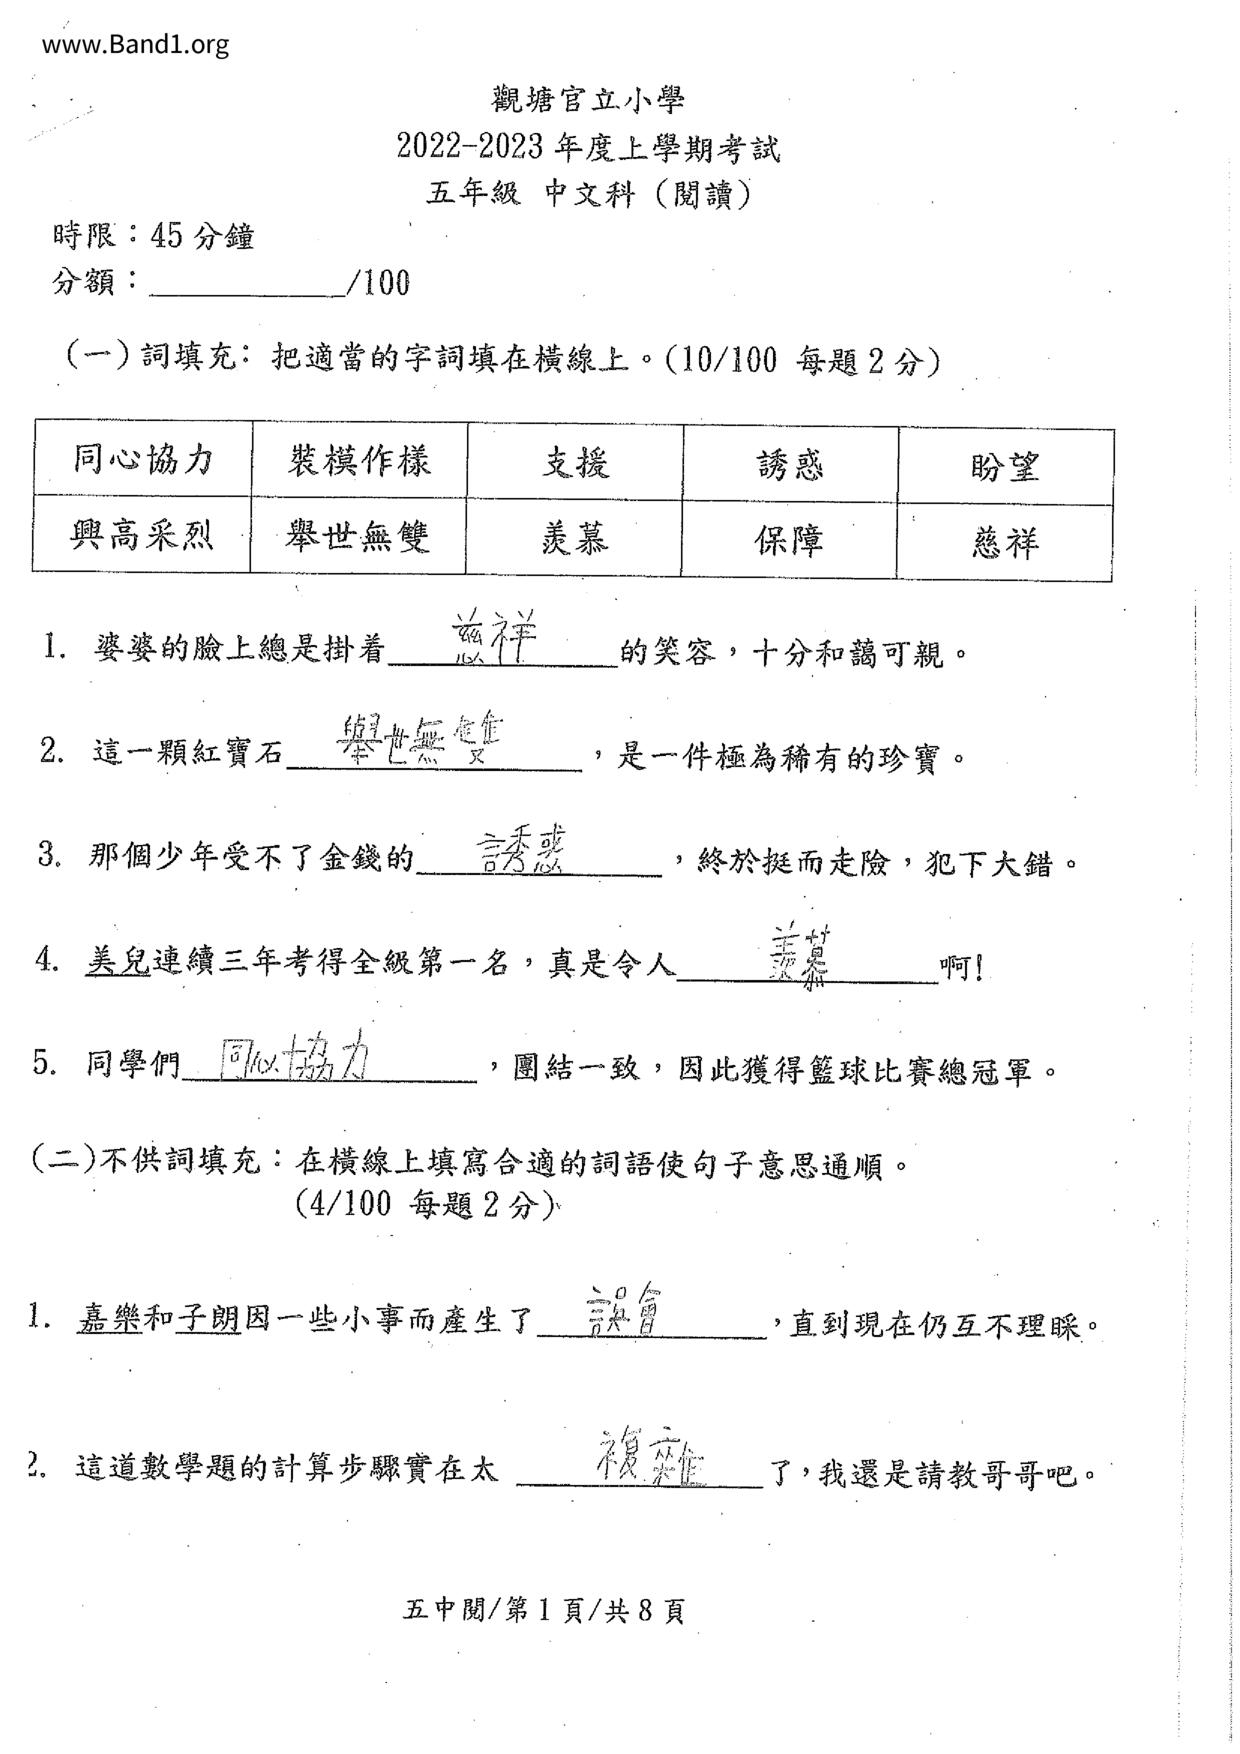 www.Band1.org
觀塘官立小學
2022-2023 年度上學期考試
五年級 中文科（閱讀）
時限：45 分鐘
分額：____________/100
(一)詞填充：把適當的字詞填在橫線上。(10/100 每題 2 分)
同心協力 裝模作樣 支援 誘惑 盼望
興高采烈 舉世無雙 羨慕 保障 慈祥
1. 婆婆的臉上總是掛着慈祥的笑容，十分和藹可親。
2. 這一顆紅寶石舉世無雙，是一件極為稀有的珍寶。
3. 那個少年受不了金錢的誘惑，終於挺而走險，犯下大錯。
4. 美兒連續三年考得全級第一名，真是令人羨慕啊！
5. 同學們同心協力，團結一致，因此獲得籃球比賽總冠軍。
(二)不供詞填充：在橫線上填寫合適的詞語使句子意思通順。
(4/100 每題 2 分)
1. 嘉樂和子朗因一些小事而產生了誤會，直到現在仍互不理睬。
2. 這道數學題的計算步驟實在太複雜了，我還是請教哥哥吧。
五中閱/第 1 頁/共 8 頁